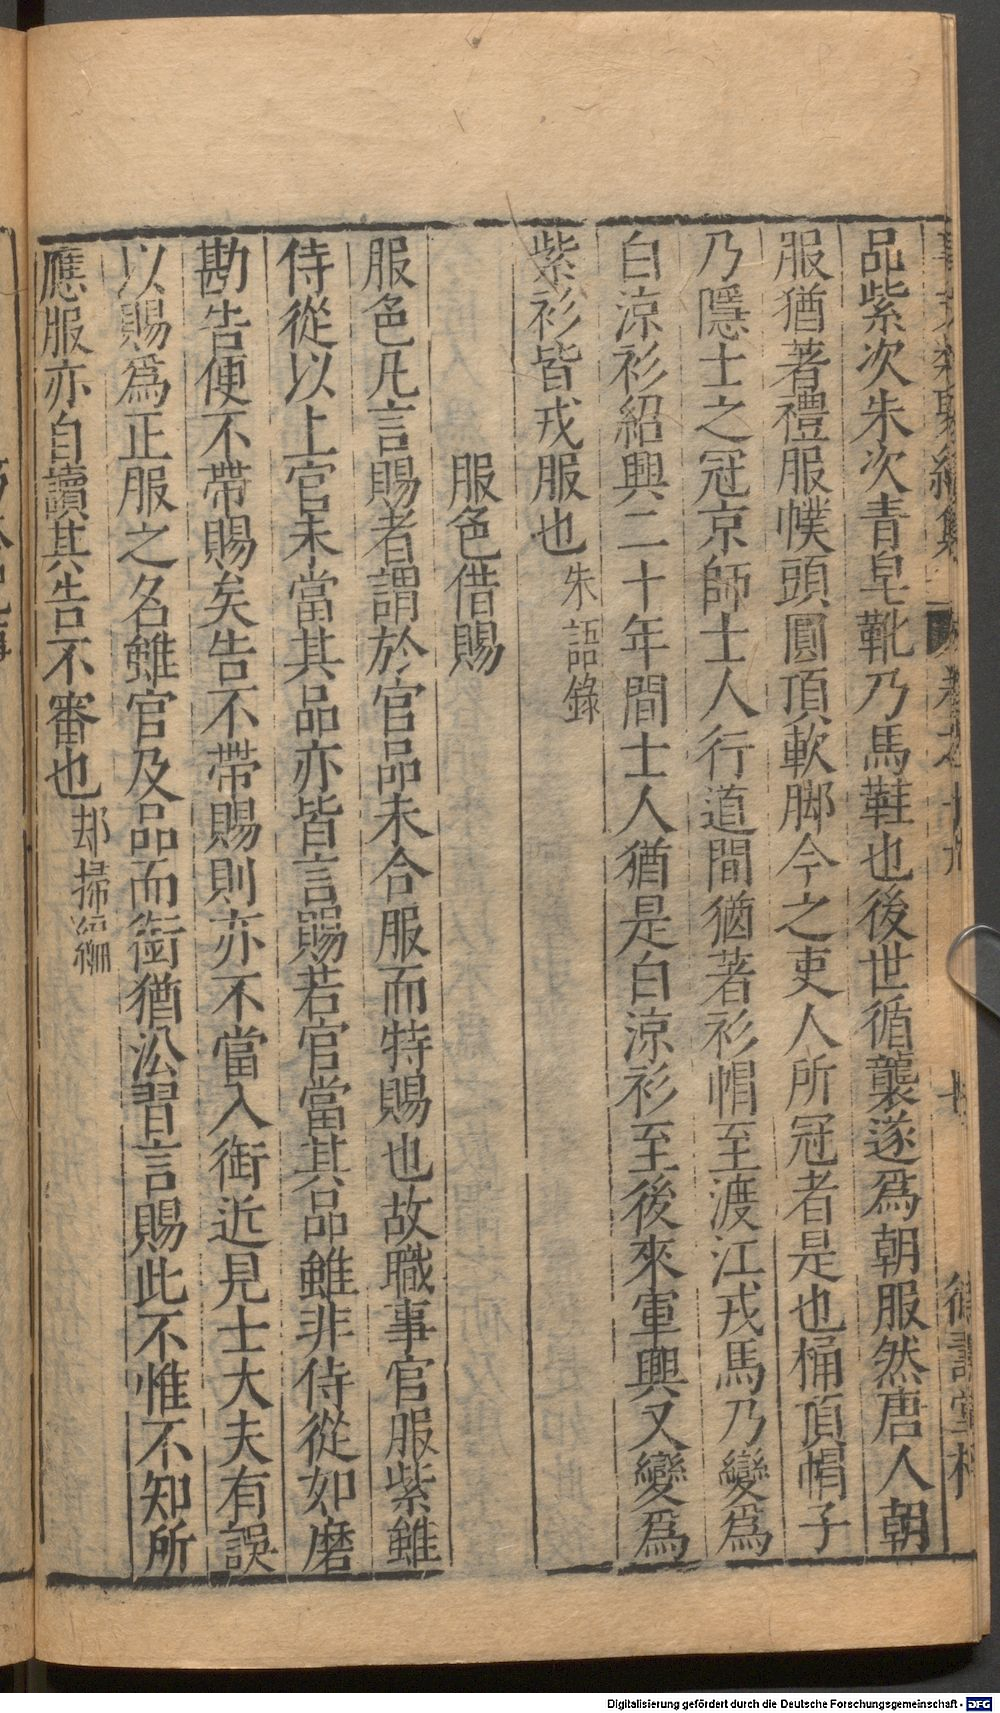 品紫次朱次青皂靴乃馬鞋也後世循襲遂爲朝服然唐人朝
服猶著禮服幞頭圓頂軟脚今之吏人所冠者是也桶頂帽子
乃隱士之冠京師士人行道間猶著衫帽至渡江戎馬乃變爲
白涼衫紹興二十年間士人猶是白涼衫至後來軍興又變爲
紫衫皆戎服也朱語錄
服色借賜
服色凡言賜者謂於官品未合服而特賜也故職事官服紫雖
侍從以上官未當其品亦皆言賜若官當其品雖非侍從如磨
勘告便不帶賜矣告不帶賜則亦不當入銜近見士大夫有誤
以賜爲正服之名雖官及品而銜猶沿習言賜此不惟不知所
應服亦自讀其告不審也却掃編
Digitalisierung gefördert durch die Deutsche Forschungsgemeinschaft - DFG